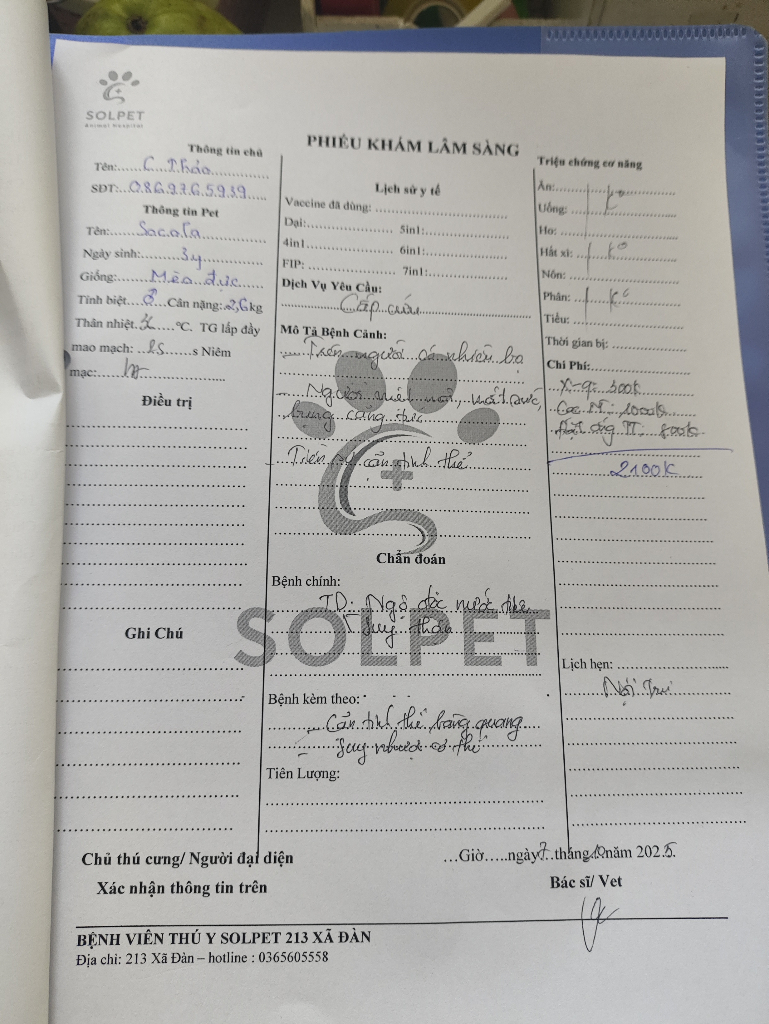 SOLPET
Animal Hospital
PHIẾU KHÁM LÂM SÀNG
Thông tin chủ
Tên: C. Thảo
SĐT: 0869765939
Thông tin Pet
Tên: Socola
Ngày sinh: 3y
Giống: Mèo đực
Tính biệt ♂ Cân nặng: 2,6 kg
Thân nhiệt °C. TG lấp đầy
mao mạch: s Niêm
mạc:
Điều trị
Ghi Chú
Lịch sử y tế
Vaccine đã dùng:
Dại: 5in1:
4in1 6in1:
FIP: 7in1:
Dịch Vụ Yêu Cầu:
Cấp cứu
Mô Tả Bệnh Cảnh:
Trên người có nhiều bọ
Người mệt mỏi, mất nước,
bụng căng tức
Tiền sử cặn tinh thể
Chẩn đoán
Bệnh chính:
TD: Ngộ độc nước tiểu
Suy thận
SOLPET
Bệnh kèm theo:
Cặn tinh thể bàng quang
Suy nhược cơ thể
Tiên Lượng:
Triệu chứng cơ năng
Ăn:
Uống: K°
Ho:
Hắt xì: K°
Nôn:
Phân: K°
Tiểu:
Thời gian bị:
Chi Phí:
X-q: 300k
1000k
Đặt ống TT: 800k
2100K
Lịch hẹn:
Nội Trú
Chủ thú cưng/ Người đại diện
Xác nhận thông tin trên
…Giờ…..ngày 7 tháng 10 năm 2025.
Bác sĩ/ Vet
BỆNH VIỆN THÚ Y SOLPET 213 XÃ ĐÀN
Địa chỉ: 213 Xã Đàn – hotline : 0365605558